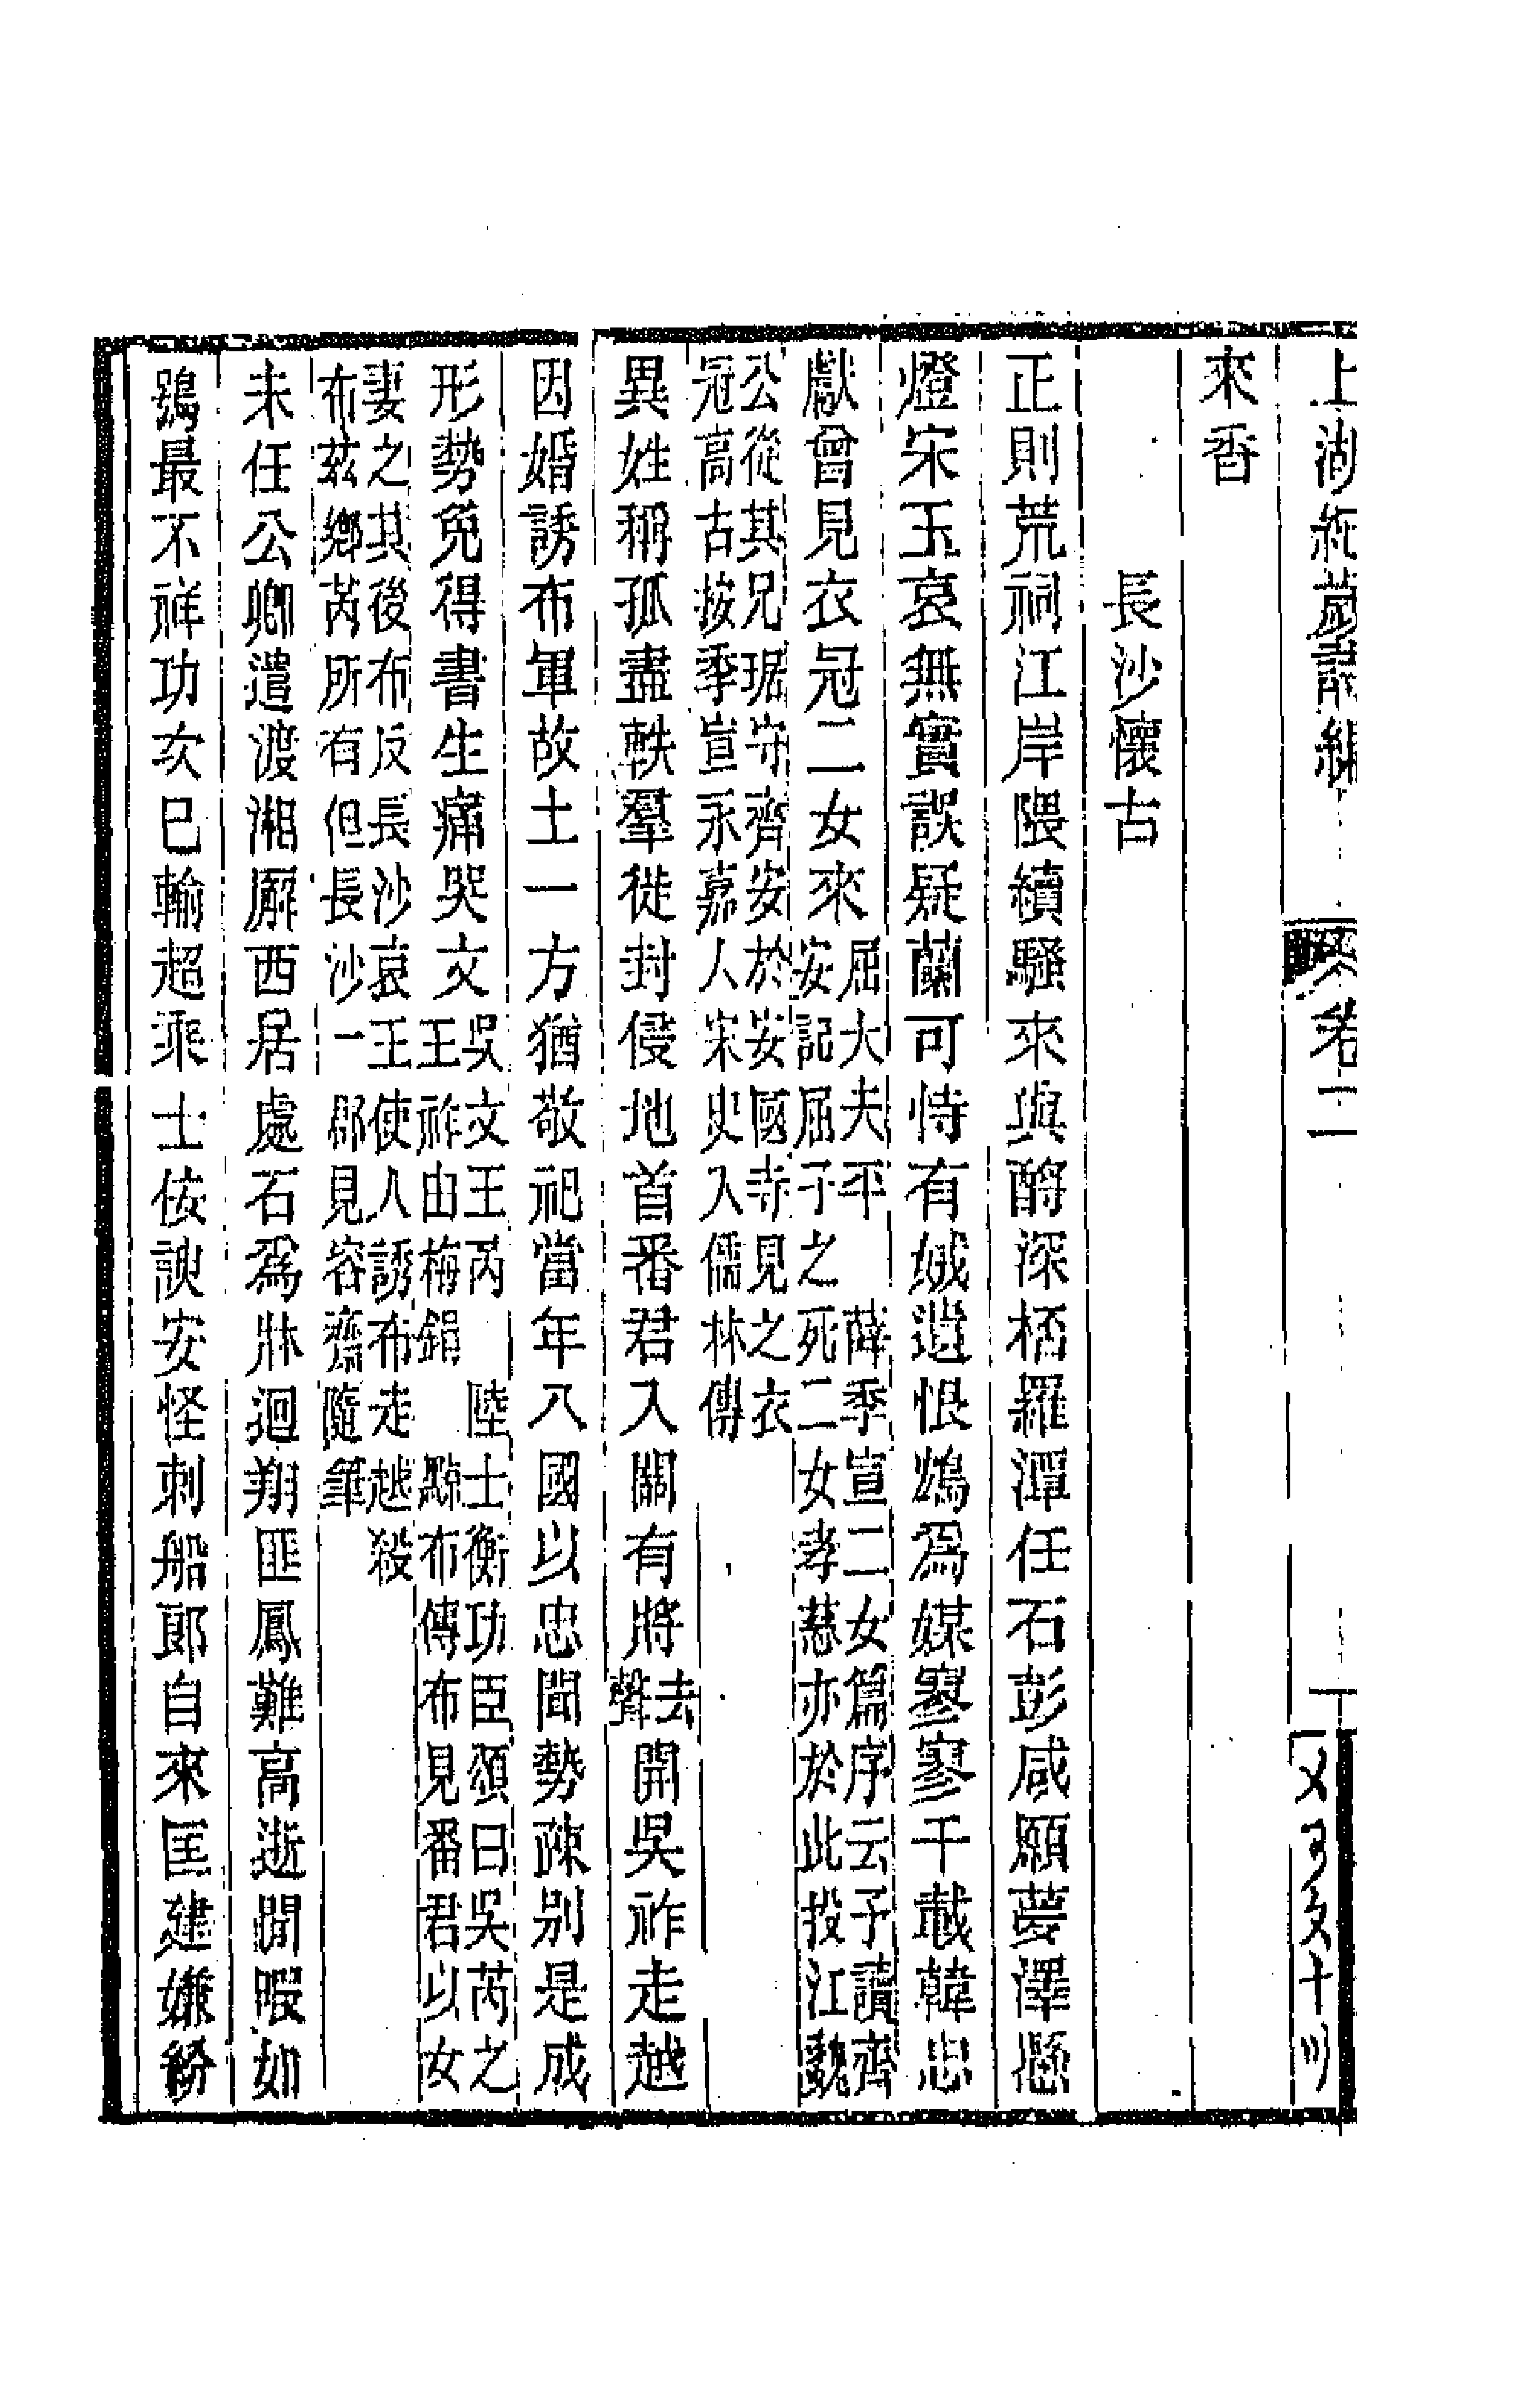 上湖紀歲詩編 卷二
來香
長沙懷古
正則荒祠江岸隈續騷來與酹深桮羅潭任石彭咸願夢澤懸
燈宋玉哀無實誤疑蘭可恃有娀遺恨鴆爲媒寥寥千載韓忠
獻曾見衣冠二女來屈大夫平 薛季宣二女篇序云予讀齊
安記屈子之死二女孝慈亦於此投江魏
公從其兄琚守齊安於安國寺見之衣
冠高古按季宣永嘉人宋史入儒林傳
異姓稱孤盡軼羣徙封侵地首番君入關有將去聲開吳祚走越
因婚誘布軍故土一方猶敬祀當年八國以忠聞勢疎別是成
形勢免得書生痛哭文吳文王芮 陸士衡功臣頌曰吳芮之
王祚由梅鋗 黥布傳布見番君以女
妻之其後布反長沙哀王使人誘布走越殺
布茲鄉芮所有但長沙一郡見容齋隨筆
未任公卿遣渡湘廨西居處石爲牀迴翔匪鳳難高逝閒暇如
鵩最不祥功次已輸超乘士佞諛安怪刺船郎自來匡建嫌紛